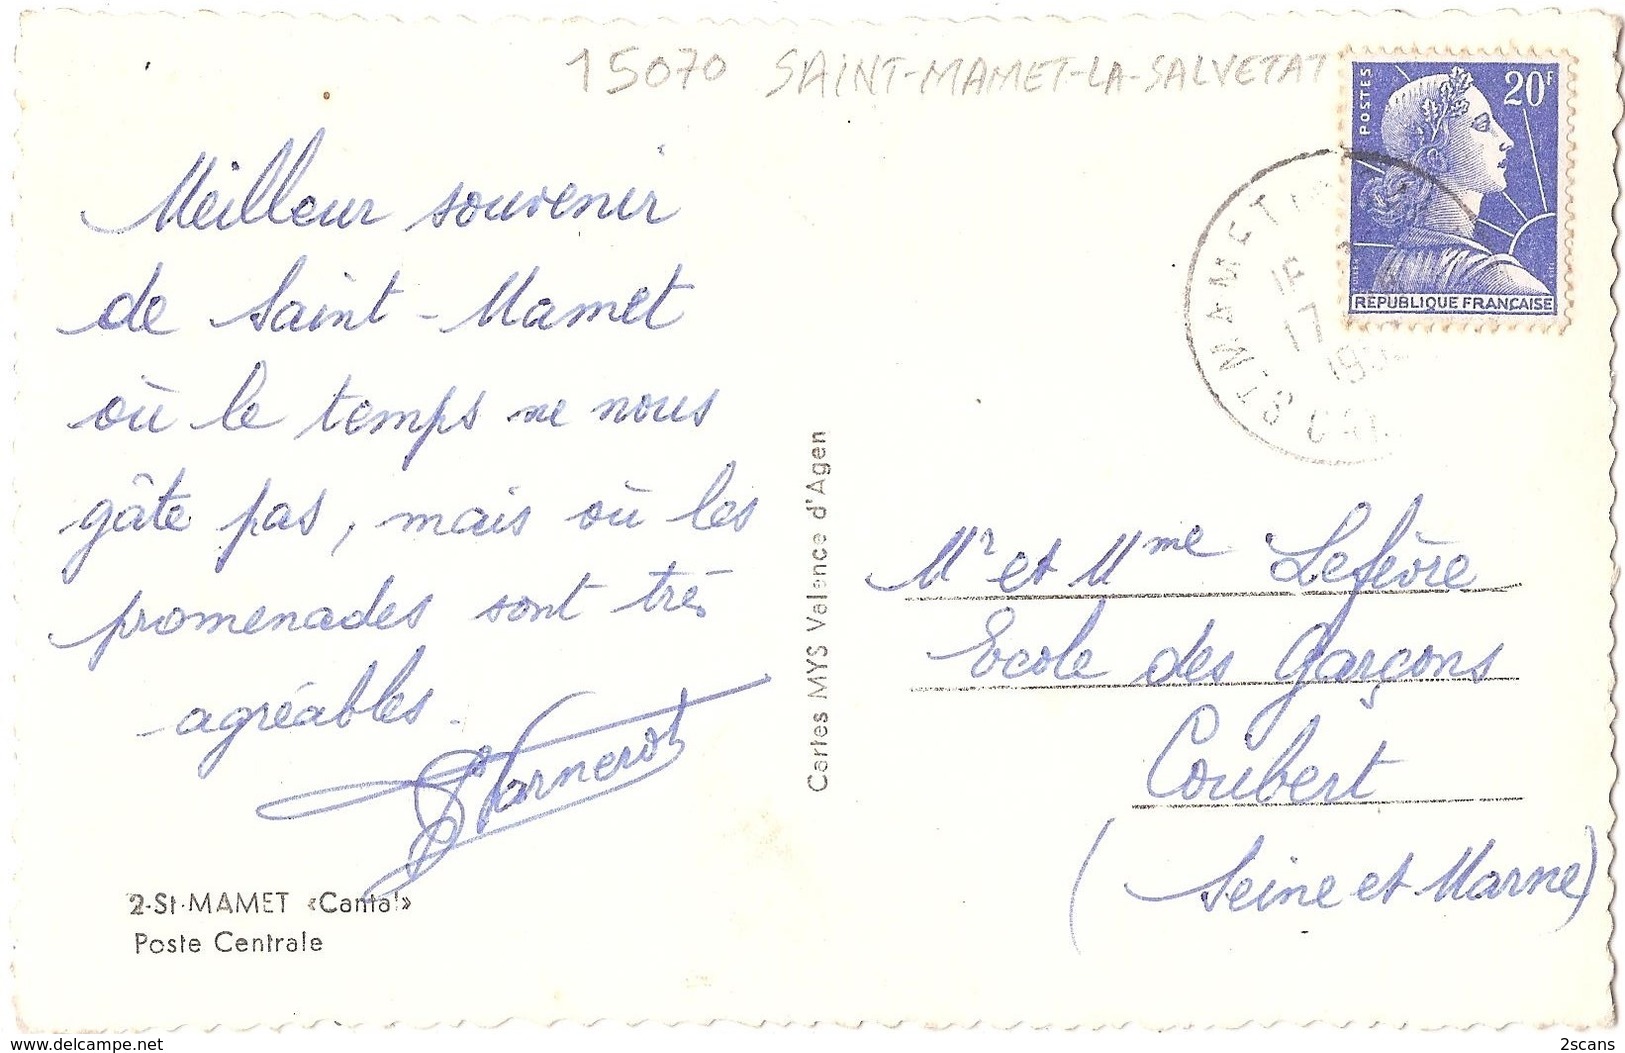 15070 SAINT-MAMET-LA-SALVETAT
Meilleur souvenir
de Saint-Mamet
où le temps ne nous
gâte pas, mais où les
promenades sont très
agréables.
2-St-MAMET «Cantal»
Poste Centrale
Cartes MYS Valence d'Agen
POSTES
20F
REPUBLIQUE FRANÇAISE
ST MAMET
17
Mr et Mme Lefèvre
Ecole des Garçons
Coubert
(Seine et Marne)
www.delcampe.net
2scans